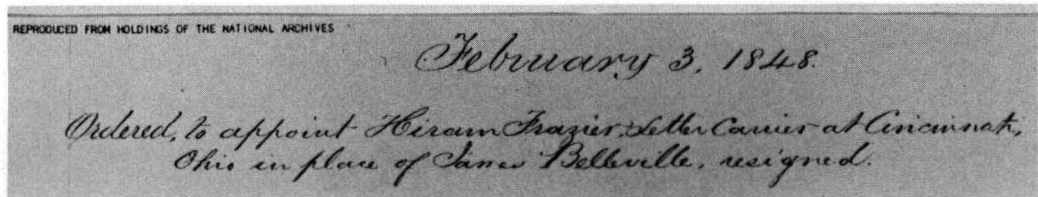 REPRODUCED FROM HOLDINGS OF THE NATIONAL ARCHIVES
February 3, 1848.
Ordered, to appoint Hiram Frazier, Letter Carrier at Cincinnati,
Ohio in place of James Belleville, resigned.